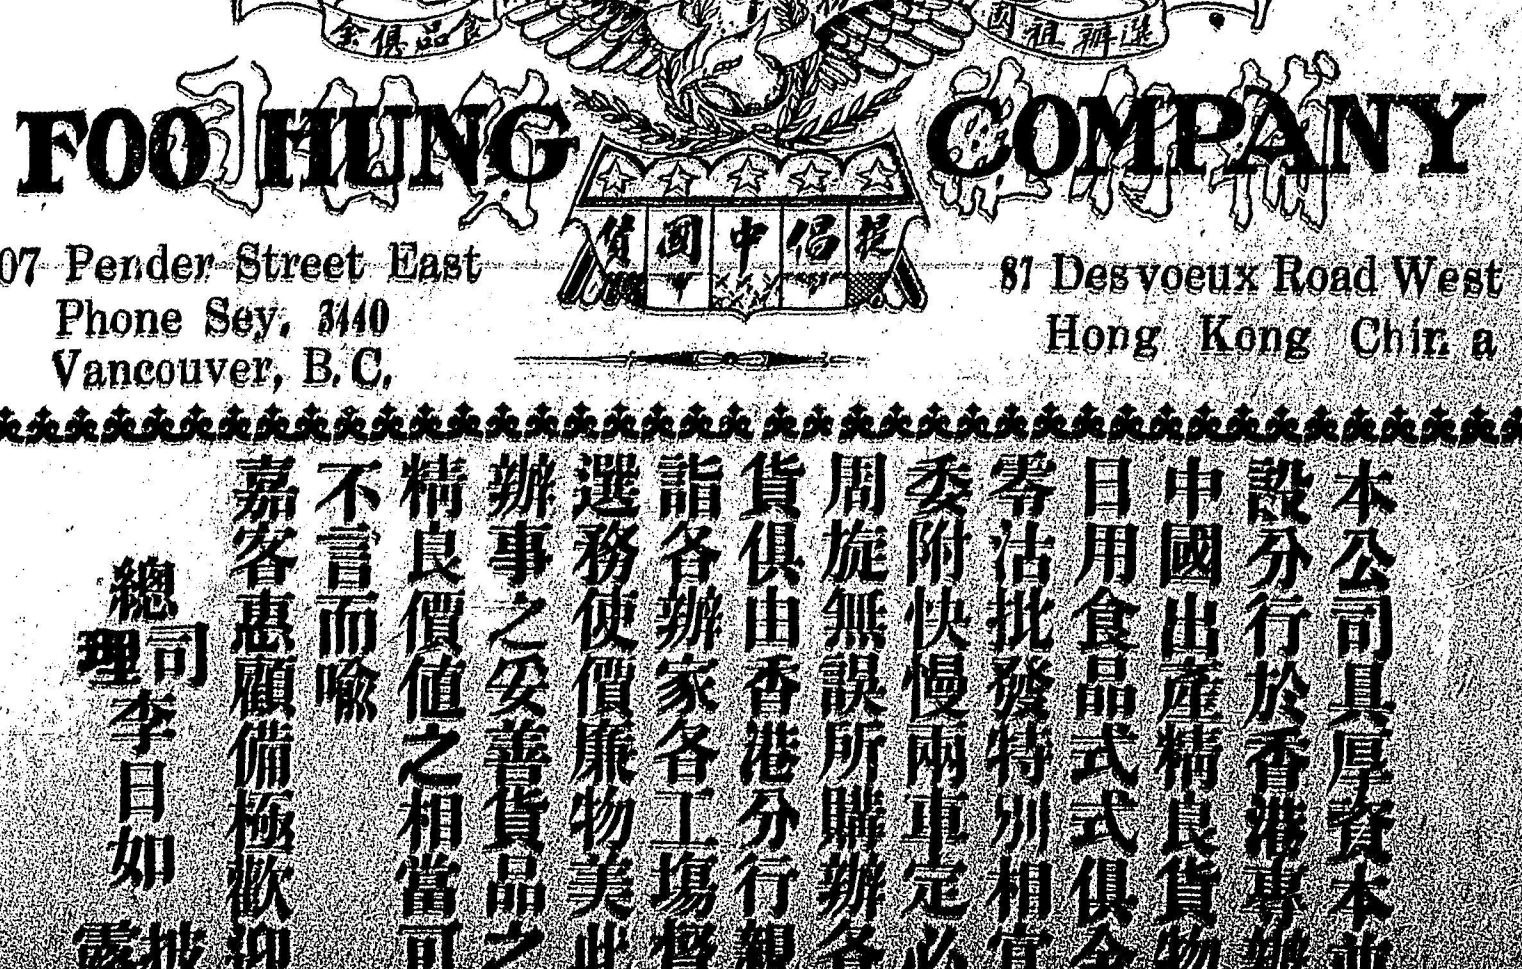 選辦祖國
食品俱全
FOO HUNG COMPANY
提倡中國貨
07 Pender Street East
Phone Sey. 3440
Vancouver, B.C.
87 Desvoeux Road West
Hong Kong China
本公司具厚資本並
設分行於香港專辦
中國出產精良貨物
日用食品式式俱全
零沽批發特別相宜
委附快慢兩車定必
周旋無誤所購辦各
貨俱由香港分行親
詣各辦家各工塲督
選務使價廉物美此
辦事之妥善貨品之
精良價值之相當可
不言而喻
嘉客惠顧備極歡迎
總司理李日如披露